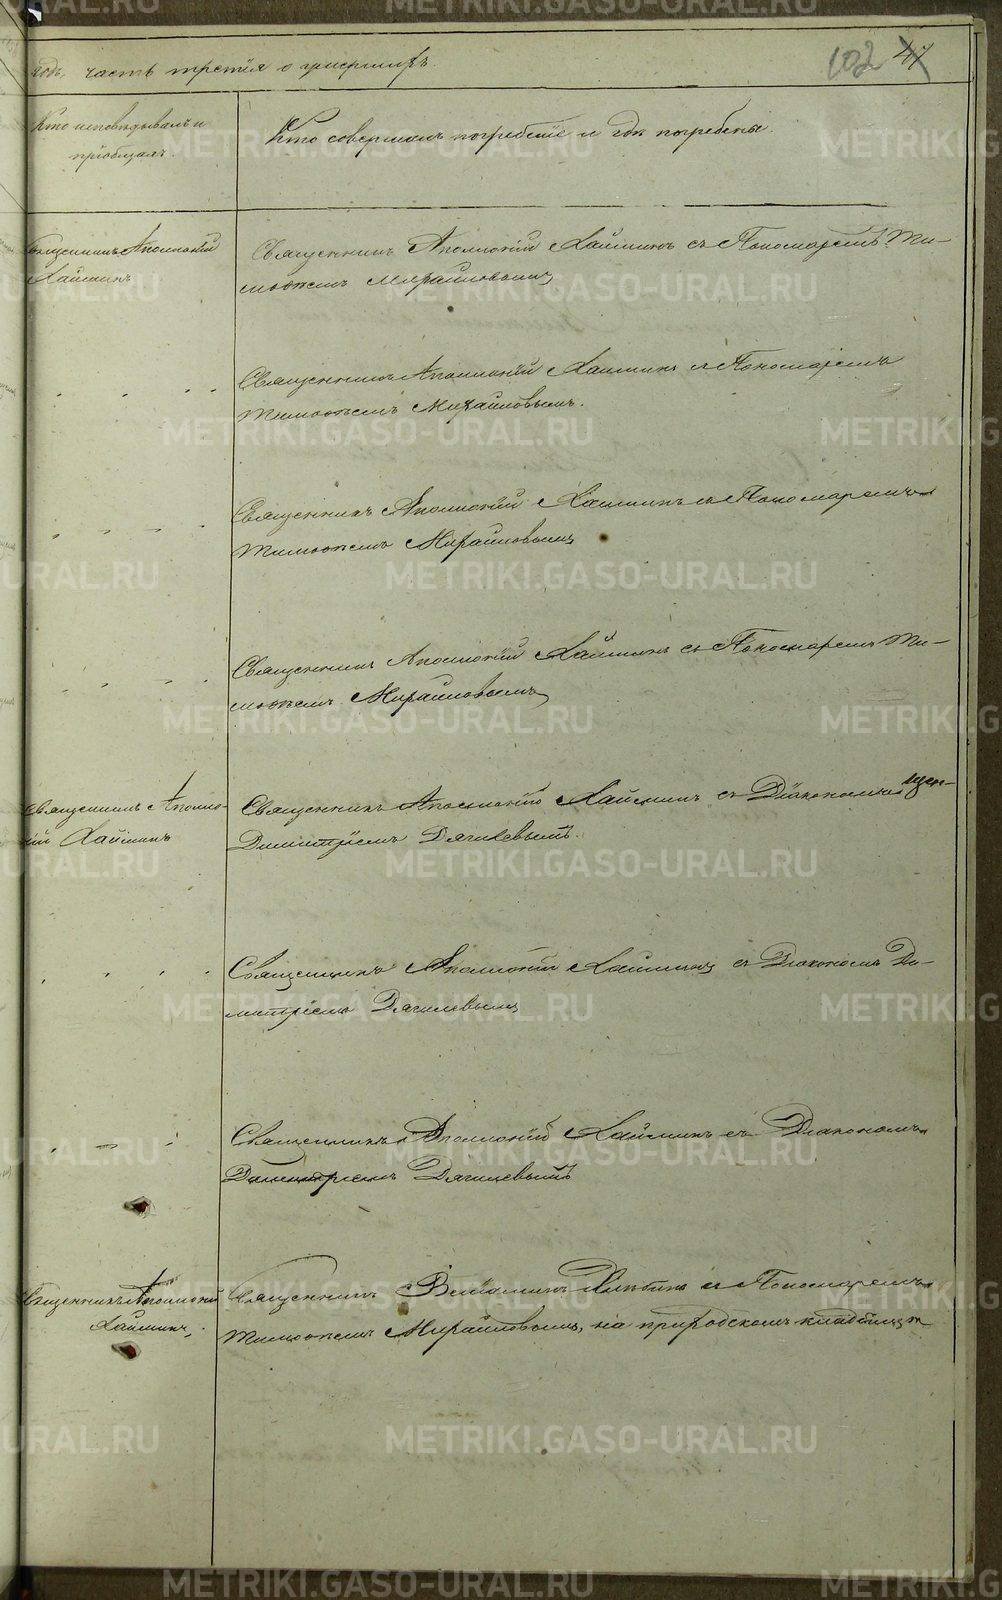 годъ, часть третія о умершихъ.
102 47
Кто исповѣдывалъ и
пріобщалъ.
Кто совершалъ погребеніе и гдѣ погребены.
Священникъ Аполлоній
Лаймикъ
Священникъ Аполлоній Лаймикъ съ Пономаремъ Ти-
моѳеемъ Михайловымъ
Священникъ Аполлоній Лаймикъ съ Пономаремъ
Тимоѳеемъ Михайловымъ.
Священникъ Аполлоній Лаймикъ съ Пономаремъ
Тимоѳеемъ Михайловымъ
Священникъ Аполлоній Лаймикъ съ Пономаремъ Ти-
моѳеемъ Михайловымъ
Священникъ Аполло-
ній Лаймикъ
Священникъ Аполлоній Лаймикъ съ Діакономъ
Димитріемъ Дягилевымъ.
Священникъ Аполлоній Лаймикъ съ Діакономъ Ди-
митріемъ Дягилевымъ
Священникъ Аполлоній Лаймикъ съ Діакономъ
Димитріемъ Дягилевымъ
Священникъ Аполлоній
Лаймикъ,
Священникъ съ Пономаремъ
Тимоѳеемъ Михайловымъ, на приходскомъ кладбищѣ
METRIKI.GASO-URAL.RU